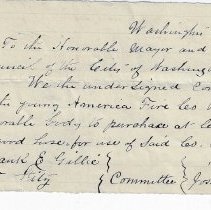 Washington
To the Honorable Mayor and
Council of the City of Washing
We the undersigned Com
the young America Fire Co
orable body to purchase at le
hose for use of Said Co.
ank E Gillie
Committee